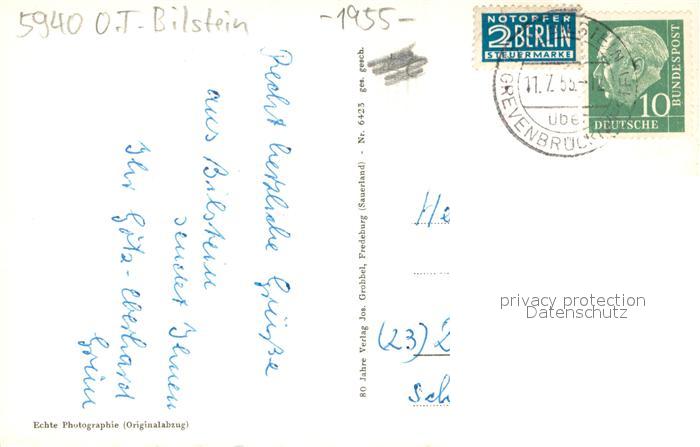 5940 O.T. Bilstein
-1955-
NOTOPFER
2 BERLIN
STEUERMARKE
DEUTSCHE BUNDESPOST
10
11.7.55.-1
über
GREVENBRÜCK
Recht herzliche Grüße
aus Bilstein
sendet Ihnen
Ihr Götz-Eberhard
Grün
80 Jahre Verlag Jos. Grobbel, Fredeburg (Sauerland) - Nr. 6423 ges. gesch.
He
(23)
sch
privacy protection
Datenschutz
Echte Photographie (Originalabzug)